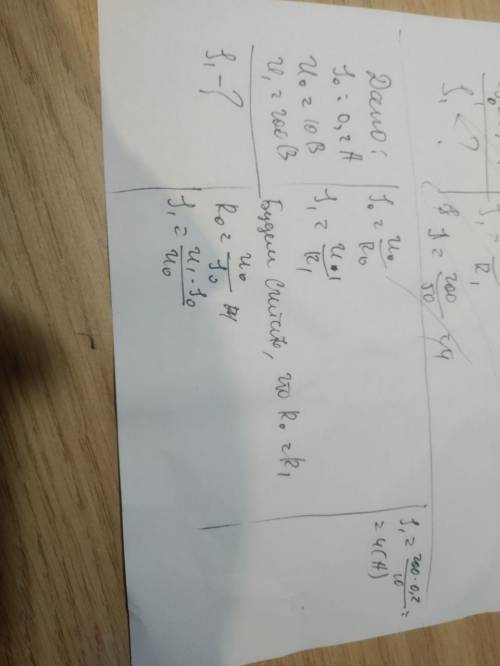 I₁ - ?
I₁ = — R₁
I = 200/50 = 4
Дано:
I₀ = 0,2 А
U₀ = 10 В
U₁ = 200 В
I₁ - ?
I₀ = U₀/R₀
I₁ = U₁/R₁
Будем считать, что R₀ = R₁
R₀ = U₀/I₀
I₁ = U₁ · I₀/U₀
I₁ = 200 · 0,2/10 =
= 4 (А)